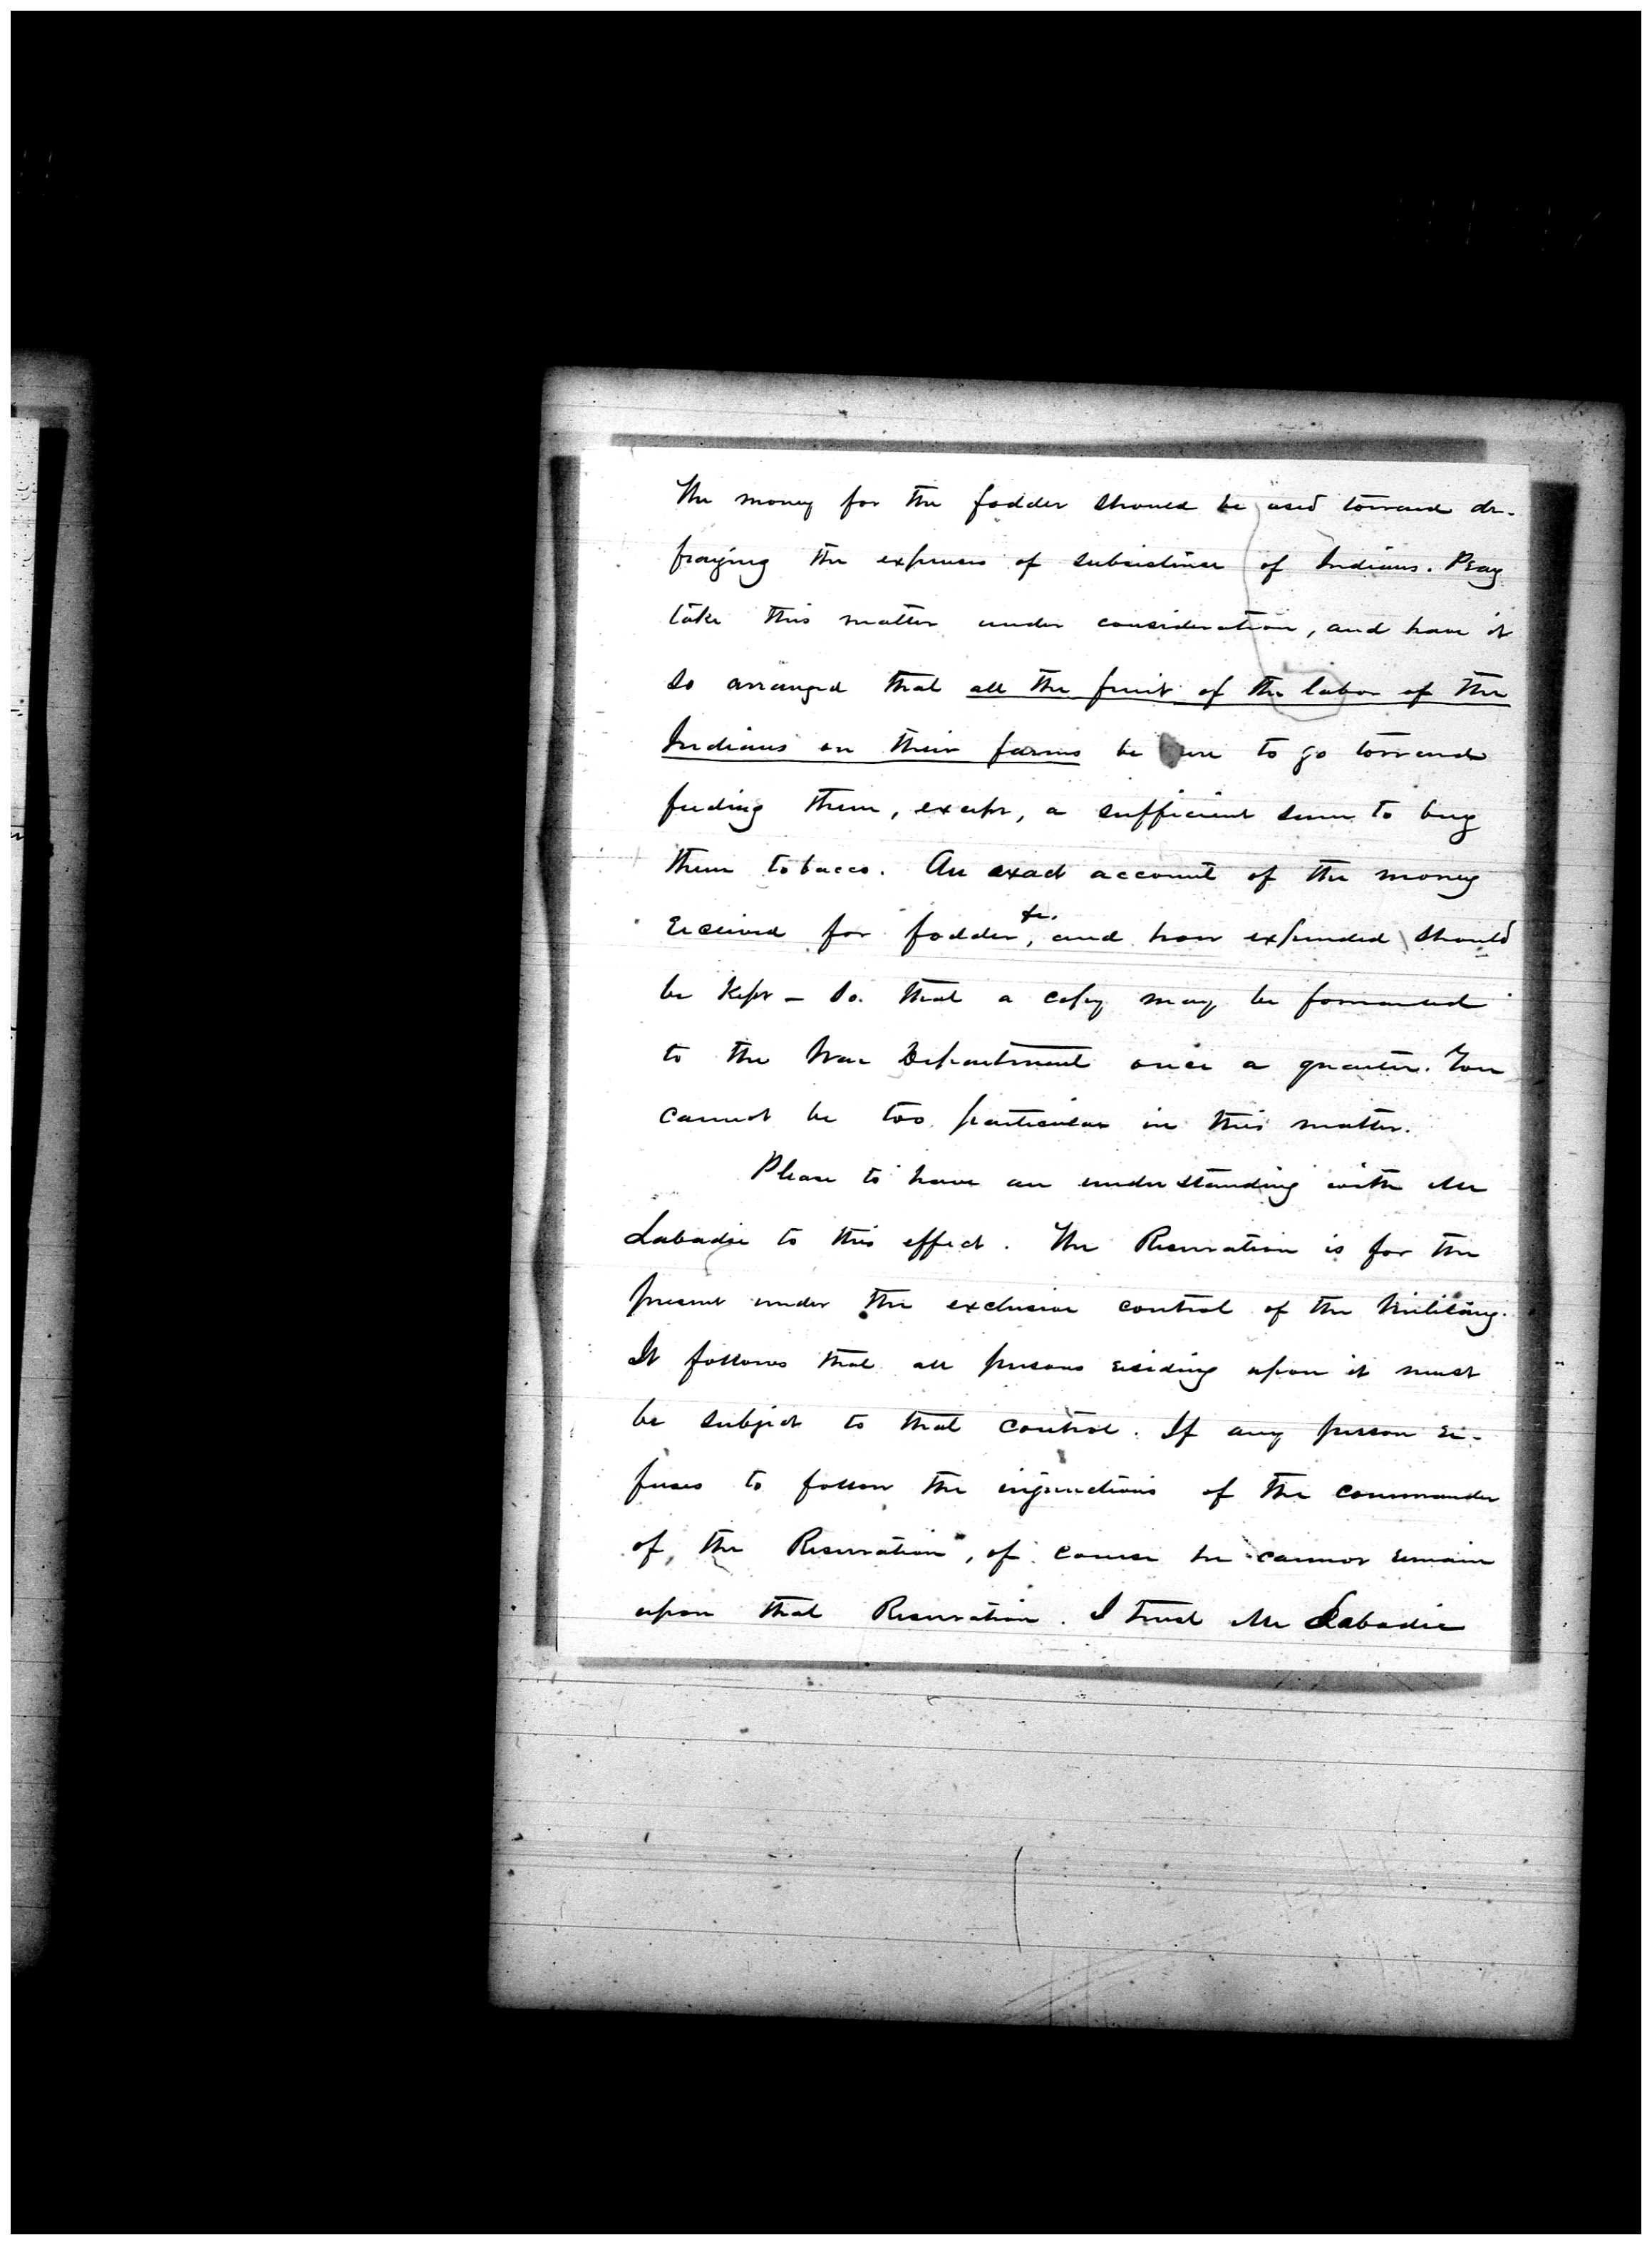 The money for the fodder should be used toward de-
fraying the expenses of subsistence of Indians. Pray
take this matter under consideration, and have it
so arranged that all the fruit of the labor of the
Indians on their farms be sure to go toward
feeding them, except, a sufficient sum to buy
them tobacco. An exact account of the money
received for fodder, &c. and how expended should
be kept - so that a copy may be forwarded
to the War Department once a quarter. You
cannot be too particular in this matter.
Please to have an understanding with Mr
Labadie to this effect. The Reservation is for the
present under the exclusive control of the Military.
It follows that all persons residing upon it must
be subject to that control. If any person re-
fuses to follow the injunctions of the commander
of the Reservation, of course he cannot remain
upon that Reservation. I trust Mr Labadie